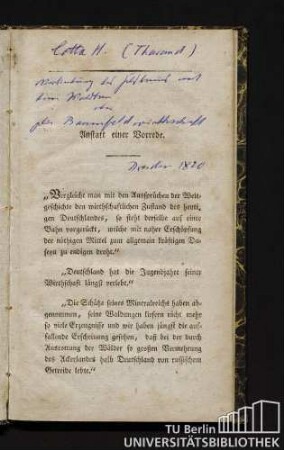 Cotta H. (Tharand)
Verbindung des Feldbaues mit
dem Waldbau
oder
die Baumfeldwirthschaft
Anstatt einer Vorrede.
Dresden 1820
„Vergleicht man mit den Aussprüchen der Welt-
geschichte den wirthschaftlichen Zustand des heuti-
gen Deutschlandes, so steht derselbe auf eine
Bahn vorgerückt, welche mit naher Erschöpfung
der nöthigen Mittel zum allgemein kräftigen Da-
seyn zu endigen droht.“
„Deutschland hat die Jugendjahre seiner
Wirthschaft längst verlebt.“
„Die Schätze seines Mineralreichs haben ab-
genommen, seine Waldungen liefern nicht mehr
so viele Erzeugnisse und wir haben jüngst die auf-
fallende Erscheinung gesehen, daß bei der durch
Ausrottung der Wälder so großen Vermehrung
des Ackerlandes halb Deutschland von russischem
Getreide lebte.“
TU Berlin
UNIVERSITÄTSBIBLIOTHEK